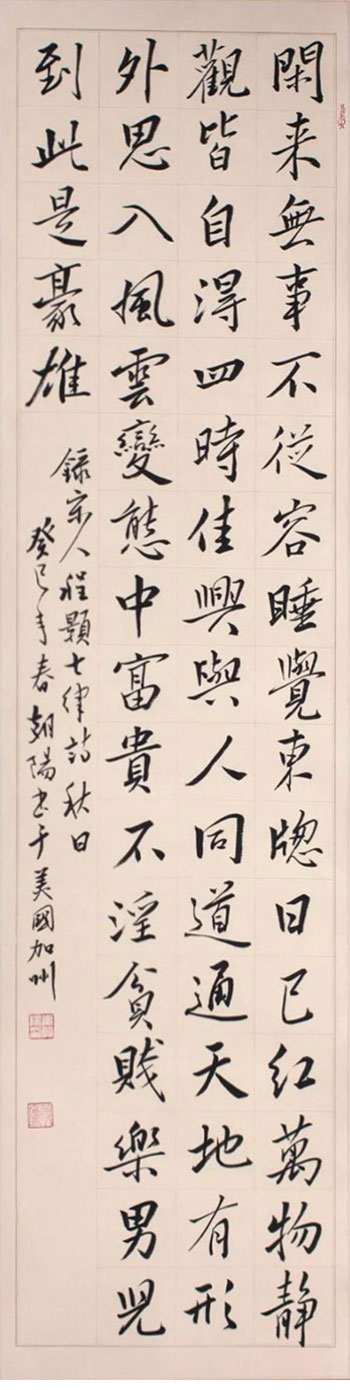 閑来無事不從容睡覺東牕日已紅萬物静
觀皆自淂四時佳興與人同道通天地有形
外思入風雲變態中富貴不淫貧賤樂男児
到此是豪雄
録宋人程顥七律詩秋日
癸巳年春朝陽書于美國加州